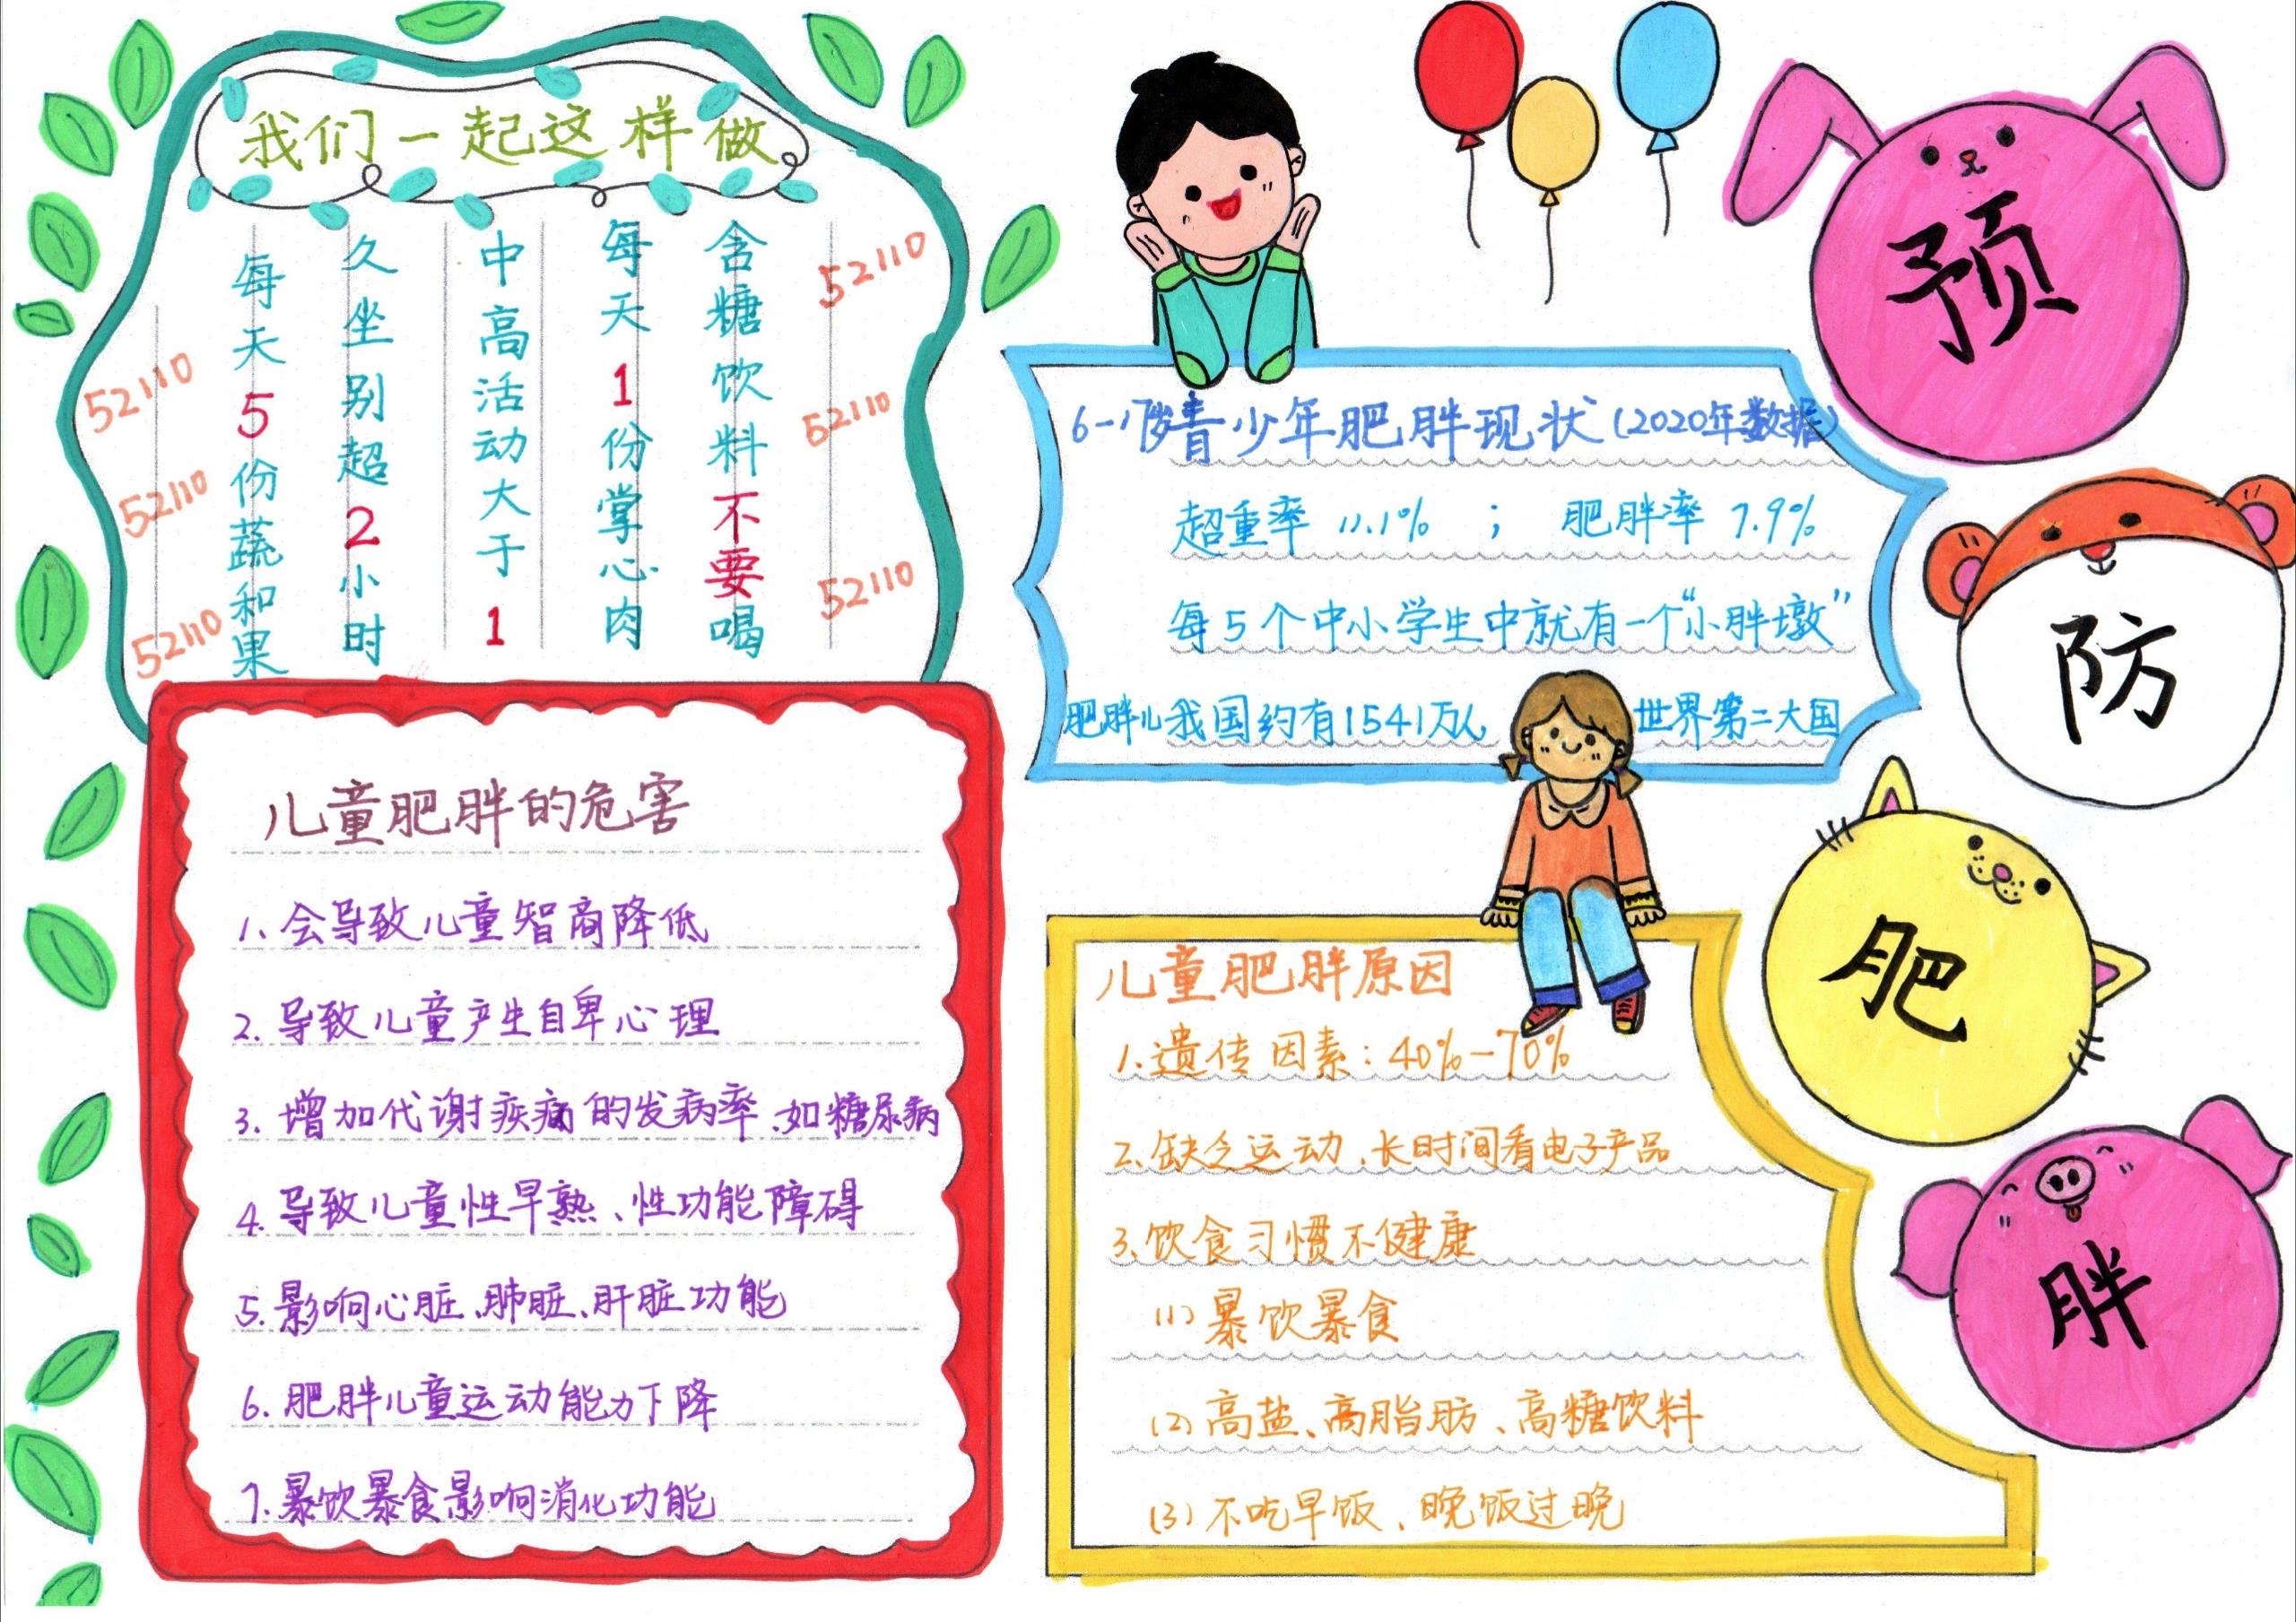 预
防
肥
胖
我们一起这样做
每天5份蔬和果
久坐别超2小时
中高活动大于1
每天1份掌心肉
含糖饮料不要喝
52110
52110
52110
52110
52110
52110
6-17岁青少年肥胖现状(2020年数据)
超重率 11.1% ; 肥胖率 7.9%
每5个中小学生中就有一个“小胖墩”
肥胖儿我国约有1541万人 世界第二大国
儿童肥胖的危害
1.会导致儿童智商降低
2.导致儿童产生自卑心理
3.增加代谢疾病的发病率、如糖尿病
4.导致儿童性早熟、性功能障碍
5.影响心脏、肺脏、肝脏功能
6.肥胖儿童运动能力下降
7.暴饮暴食影响消化功能
儿童肥胖原因
1.遗传因素:40%-70%
2.缺乏运动、长时间看电子产品
3.饮食习惯不健康
(1)暴饮暴食
(2)高盐、高脂肪、高糖饮料
(3)不吃早饭、晚饭过晚